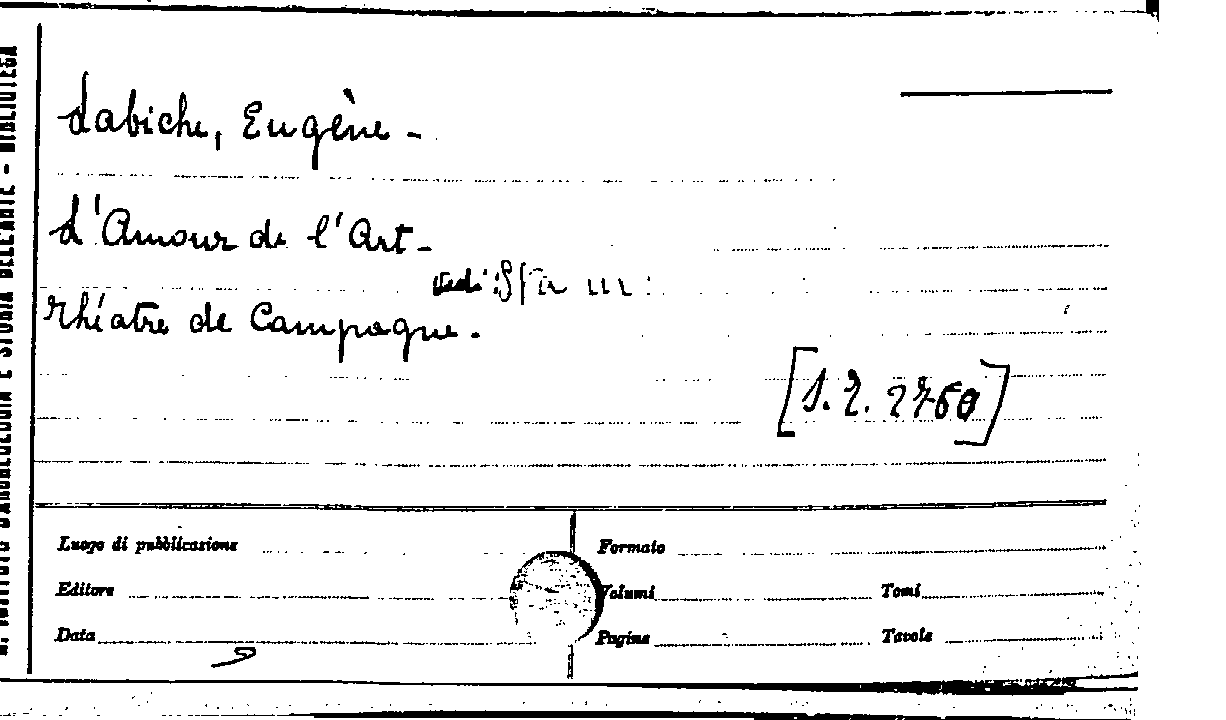 Labiche, Eugène -
L'Amour de l'Art -
vedi:
Théatre de Campagne.
[S. T. 2760]
Luogo di pubblicazione
Formato
Editore
Volumi
Tomi
Data
Pagine
Tavole
R. ISTITUTO D'ARCHEOLOGIA E STORIA DELL'ARTE - BIBLIOTECA